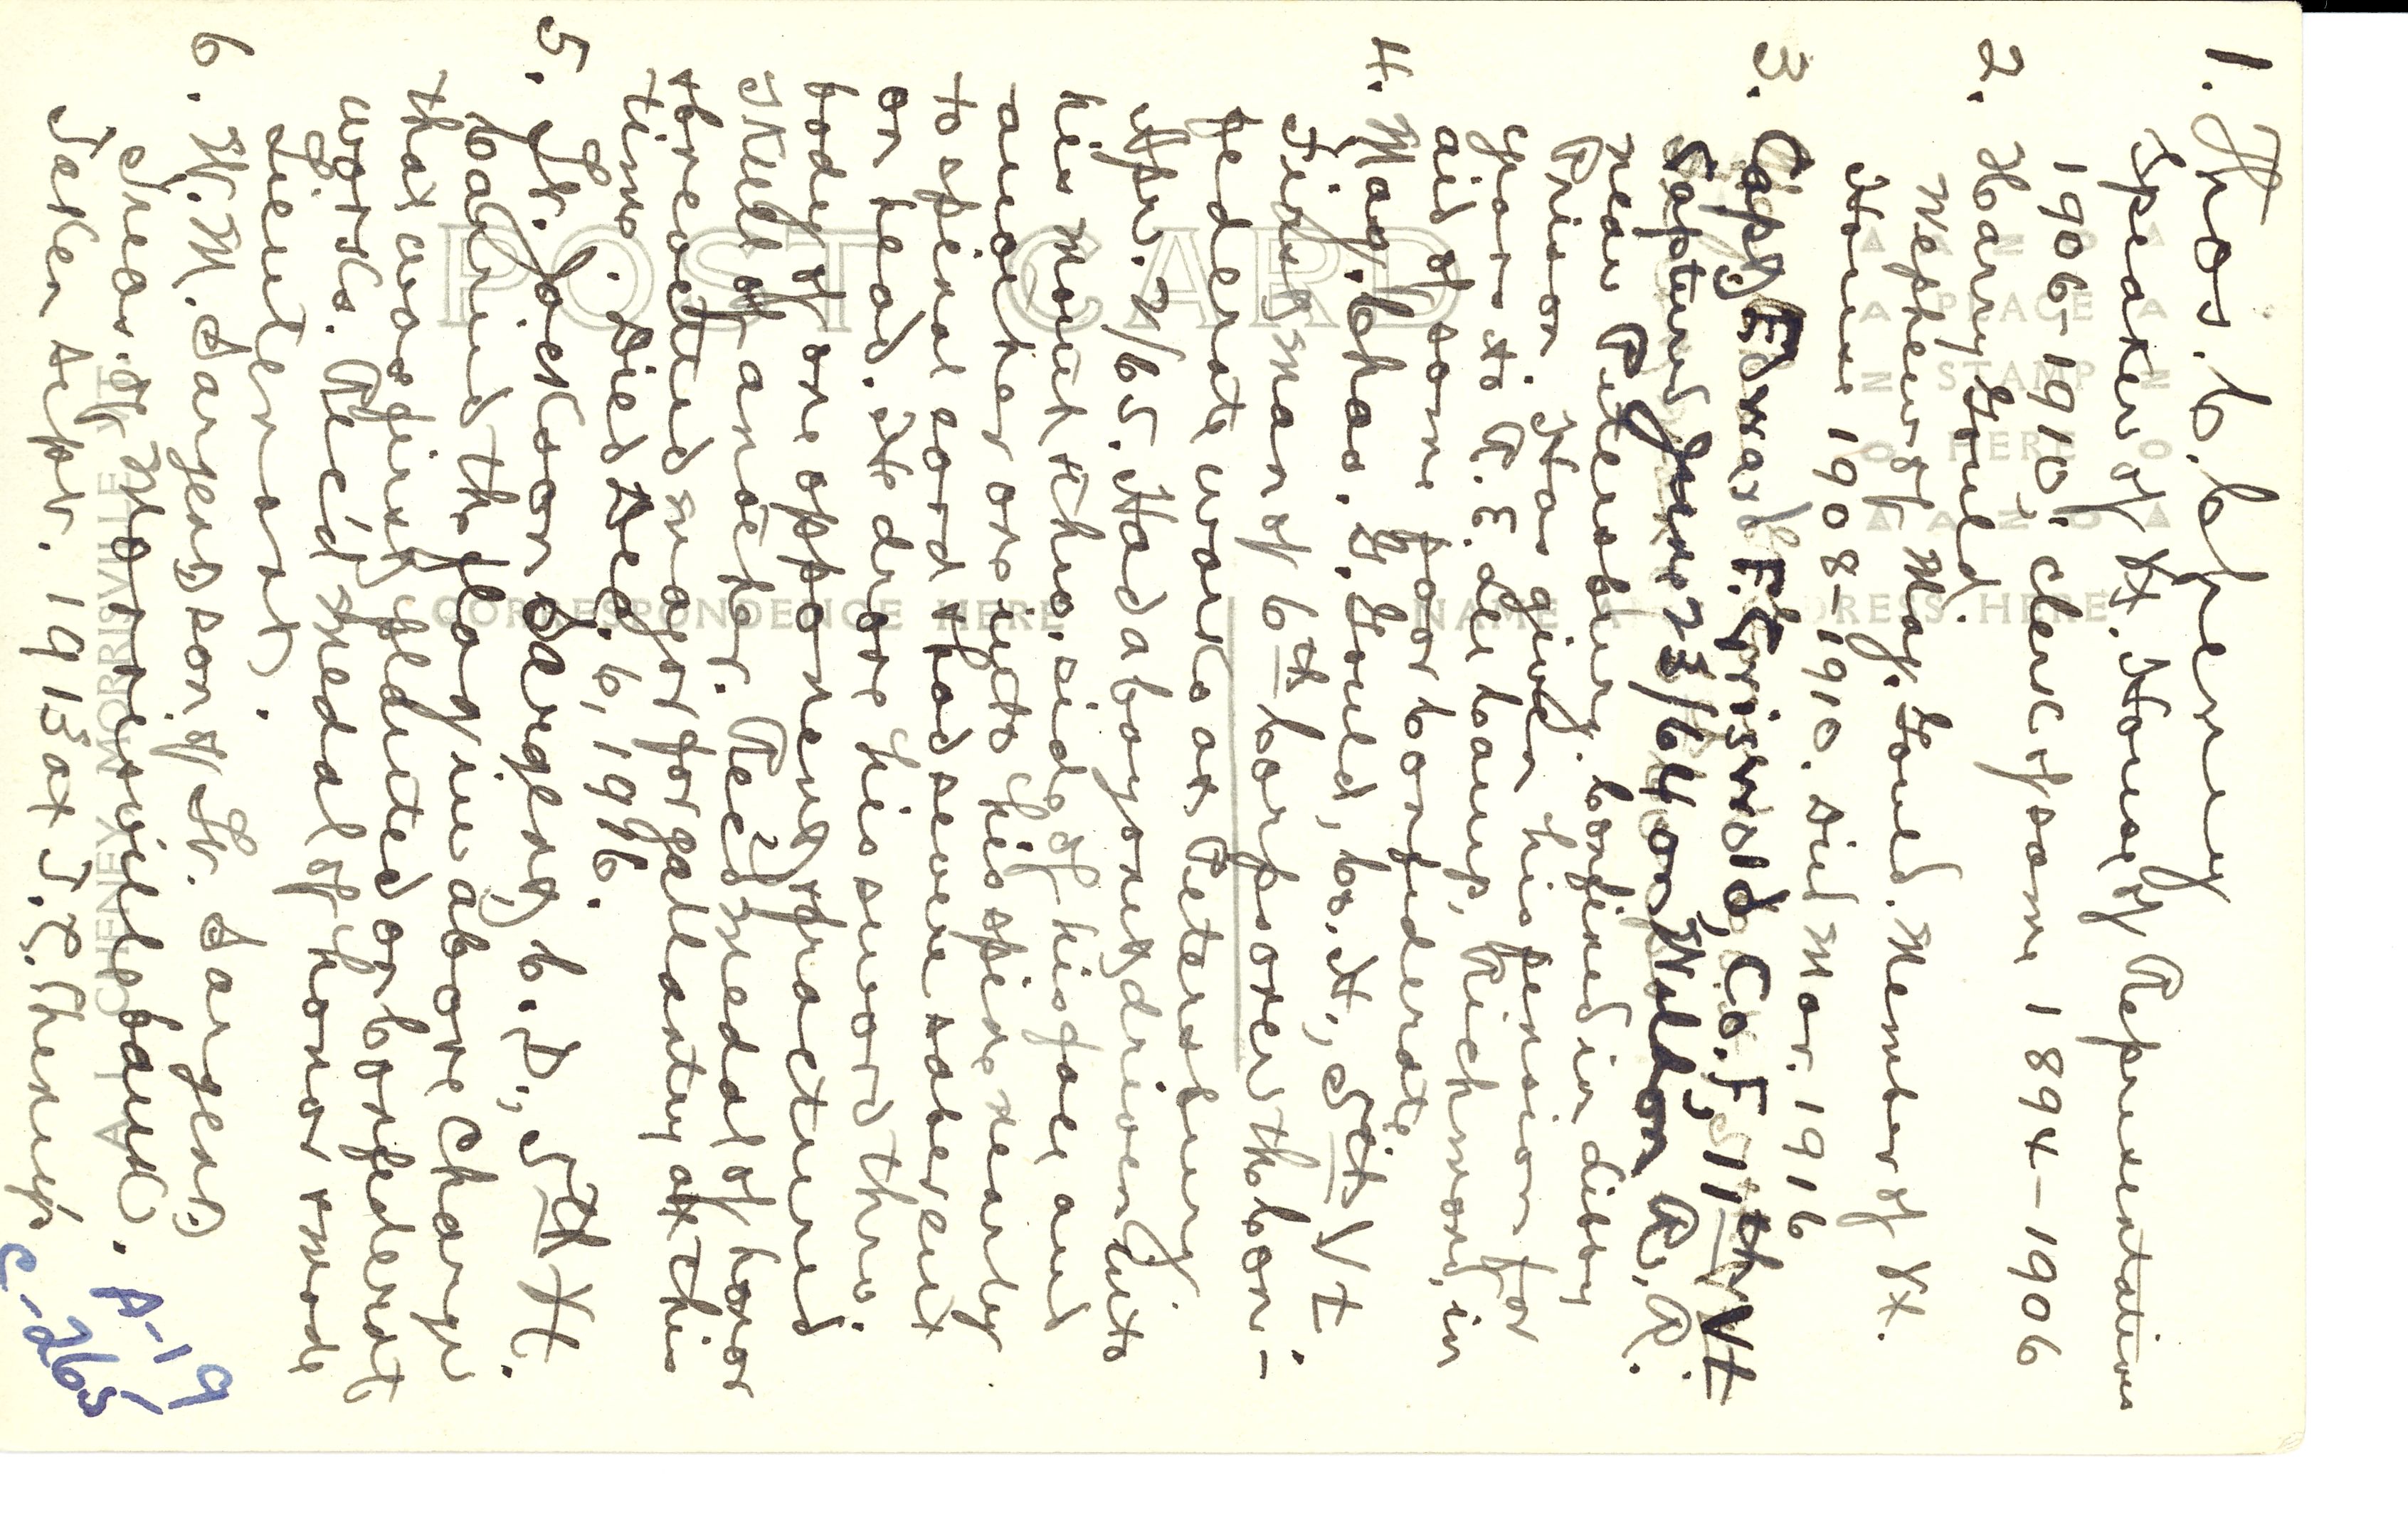 1. Thos. C. Cheney
Speaker of Vt. House of Representatives
1906-1910; clerk of same 1894-1906
2. Harry Gould.
Nephew of Maj. Gould. Member of Vt.
House 1908-1910. Died Mar. 1916
3. Capt. Edward F. Griswold, Co. F, 11th Vt
Captured June 23/64 on Weldon R. R.
near Petersburg. Confined in Libby
Prison. Has given his pension for
years to P. E. Al Camp, Richmond, in
aid of some poor Confederate
4. Maj. Chas. G. Gould, Co. H, 5th Vt.
First man of 6th Corps over the Con-
federate works at Petersburg
Apr. 2/65. Had a bayonet driven into
his mouth thro. side of his face and
another one into his spine nearly
to spinal cord & had severe saber cut
on head. He drove his sword thro.
body of one opponent & fractured
skull of another. Rec'd medal of honor
& brevetted major for gallantry at this
time. Died Dec. 6, 1916.
5. Lt. Jackson Sargent, Co. D, 5th Vt.
Carried the flag in above charge
that was first planted on Confederate
works. Rec'd medal of honor & made
Lieutenant.
6. W. M. Sargent, son of Lt. Sargent.
Treas. of Morrisville bank.
Taken Sept. 1913 at T. C. Cheney's
A-19
C-265
POST CARD
PLACE
STAMP
HERE
CORRESPONDENCE HERE
NAME ADDRESS HERE
CHENEY MORRISVILLE VT